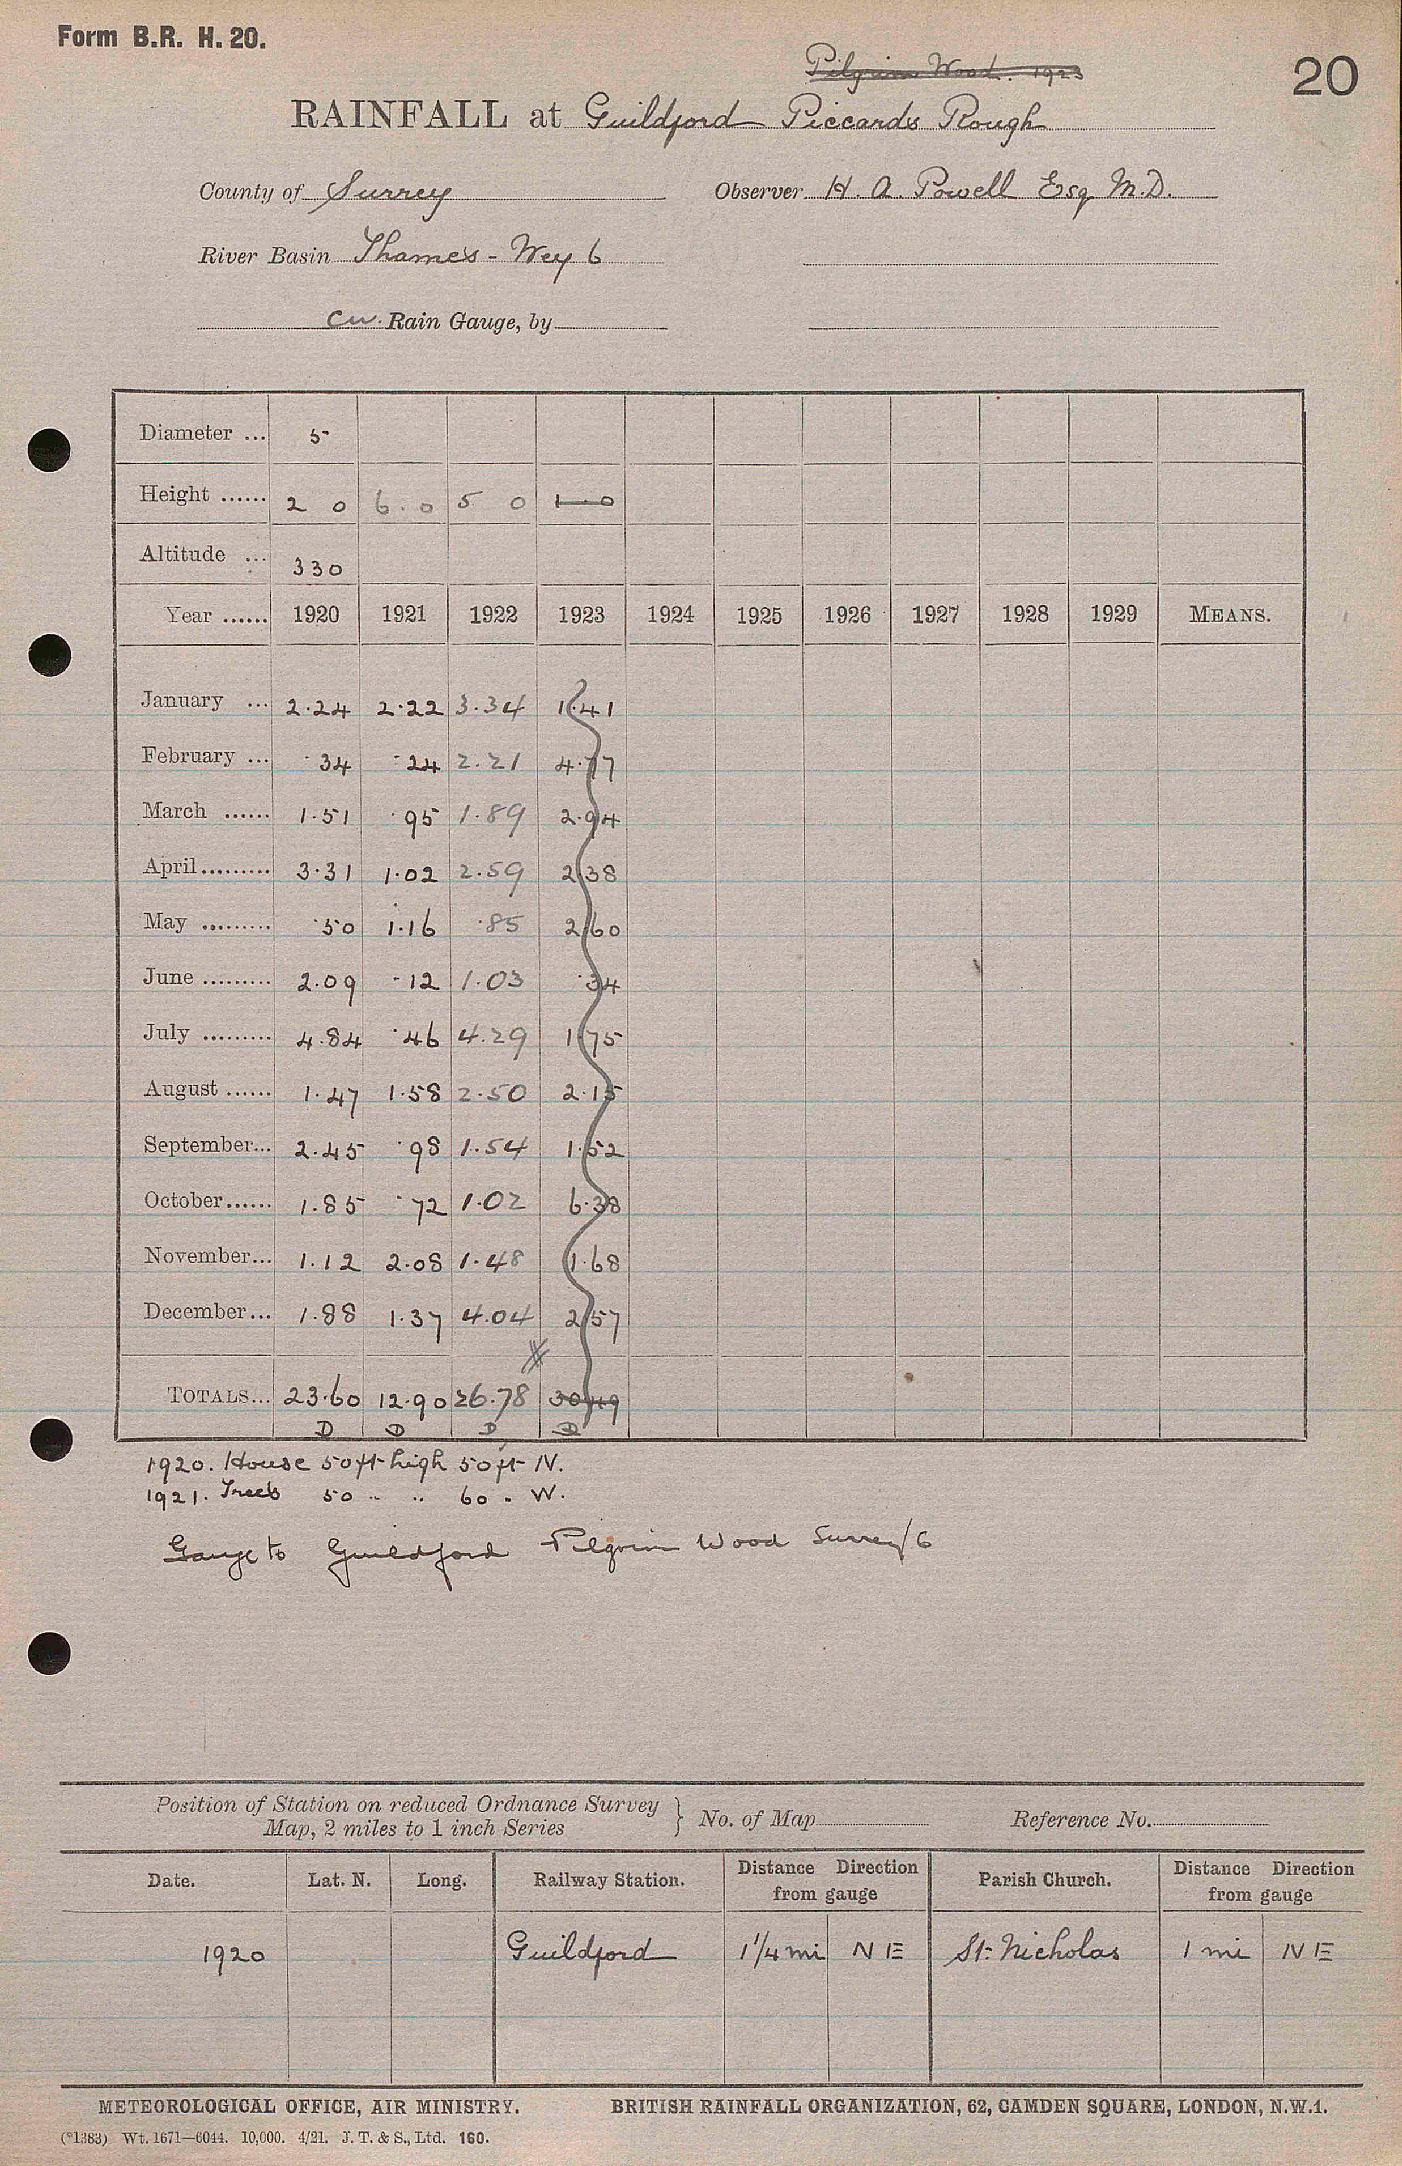 Form B.R. H. 20.
Pilgrim Wood. 1923
20
RAINFALL at Guildford Piccards Rough
County of Surrey Observer H. A. Powell Esq M.D.
River Basin Thames - Wey 6
Rain Gauge, by
Diameter ... 5
Height ...... 2 0 6.0 5 0 1.0
Altitude ... 330
Year ...... 1920 1921 1922 1923 1924 1925 1926 1927 1928 1929 MEANS.
January ... 2.24 2.22 3.34 1.41
February ... .34 .24 2.21 4.77
March ...... 1.51 .95 1.89 2.94
April ......... 3.31 1.02 2.59 2.38
May ......... .50 1.16 .85 2.60
June ......... 2.09 .12 1.03 .34
July ......... 4.84 .46 4.29 1.75
August ...... 1.47 1.58 2.50 2.15
September... 2.45 .98 1.54 1.52
October...... 1.85 .72 1.02 6.38
November... 1.12 2.08 1.48 1.68
December... 1.88 1.37 4.04 2.57
TOTALS... 23.60 12.90 26.78 30.49
D D D D
1920. House 50 ft high 50 ft N.
1921. Trees 50 " " 60 " W.
Gauge to Guildford Pilgrim Wood Surrey/6
Position of Station on reduced Ordnance Survey
Map, 2 miles to 1 inch Series } No. of Map Reference No.
Date. Lat. N. Long. Railway Station. Distance Direction from gauge Parish Church. Distance Direction from gauge
1920 Guildford 1 1/4 mi N E St. Nicholas 1 mi N E
METEOROLOGICAL OFFICE, AIR MINISTRY. BRITISH RAINFALL ORGANIZATION, 62, CAMDEN SQUARE, LONDON, N.W.1.
(*1383) Wt. 1671—6044. 10,000. 4/21. J. T. & S., Ltd. 160.